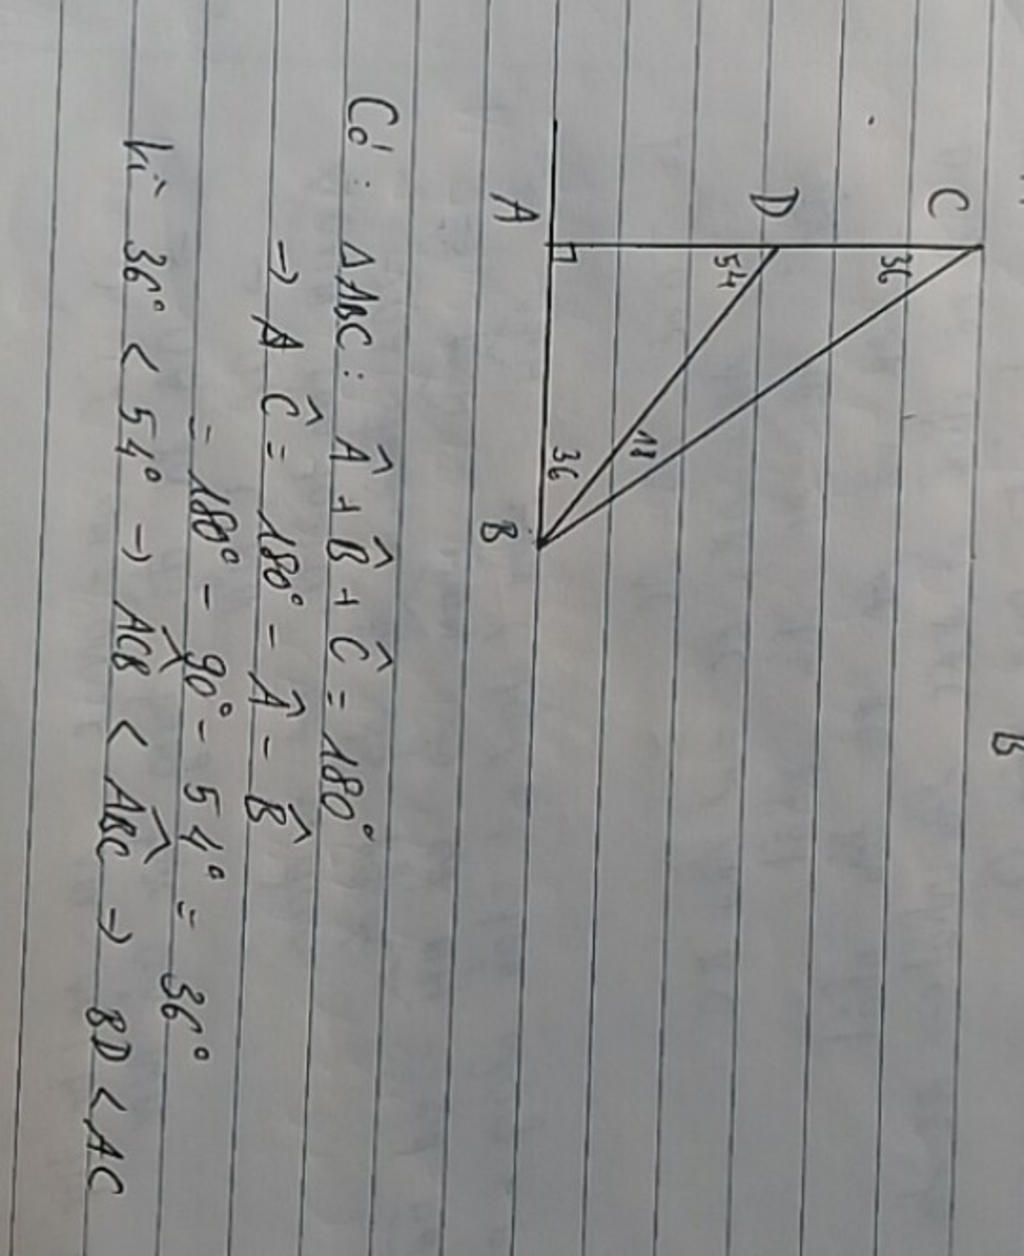 B
C
D
A
B
36
54
18
36
Có : ΔABC : Â + B̂ + Ĉ = 180°
→ A Ĉ = 180° - Â - B̂
= 180° - 90° - 54° = 36°
Vì 36° < 54° → ACB̂ < ABĈ → BD < AC